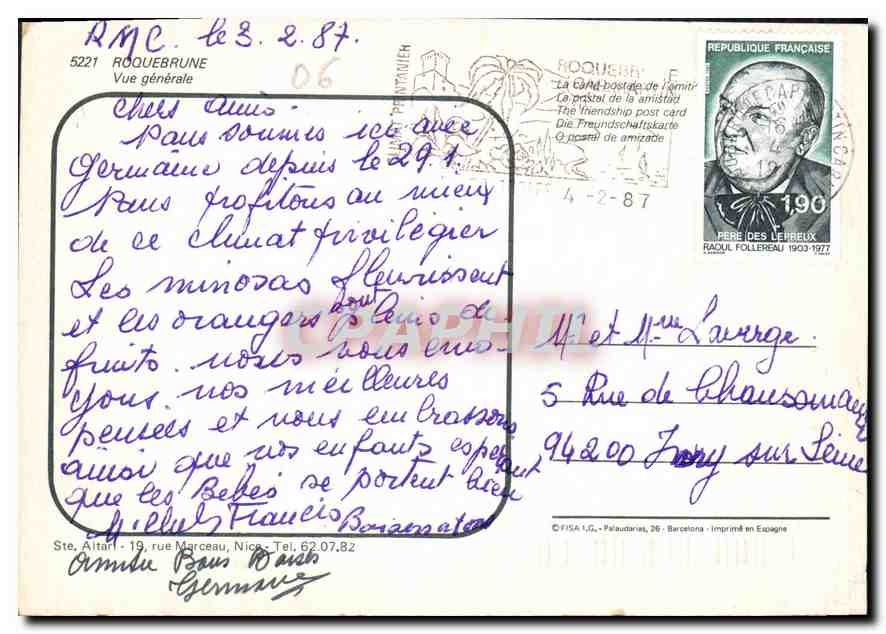 RMC. le 3. 2. 87.
5221 ROQUEBRUNE
Vue générale
06
chers amis.
Nous sommes ici avec
Germaine depuis le 29.1.
Nous profitons au mieux
de ce climat privilégier
Les mimosas fleurissent
et les orangers sont pleins de
fruits. nous vous envo-
yons nos meilleures
pensées et nous embrassons
ainsi que vos enfants espérant
que les Bébés se portent bien
Francis
Ste. Altari - 19, rue Marceau, Nice - Tel. 62.07.82
Amitié Bons Baisés
Germaine
ROQUEBRUNE
La carte postale de l'amitié
La postal de la amistad
The friendship post card
Die Freundschaftskarte
O postal de amizade
4 -2-87
REPUBLIQUE FRANÇAISE
1,90
PERE DES LEPREUX
RAOUL FOLLEREAU 1903-1977
CPAPHIL
Mr et Mme Laverge.
5 Rue de
94200 Ivry sur Seine
© FISA I.G., - Palaudarias, 26 - Barcelona - Imprimé en Espagne